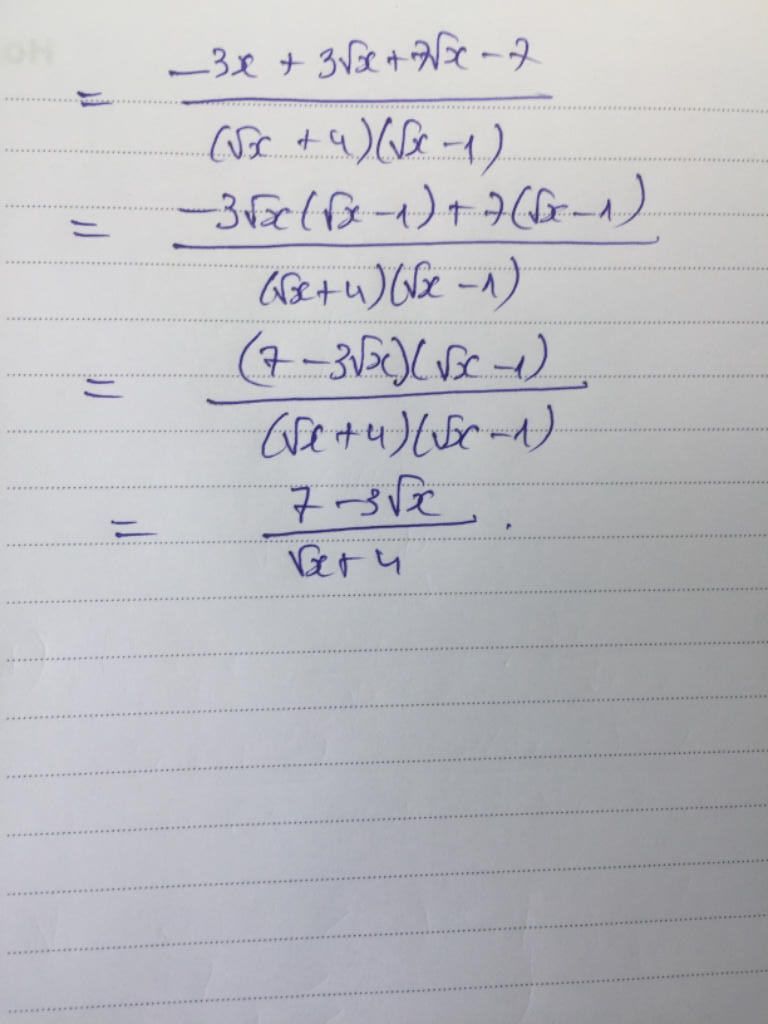 = (-3x + 3√x + 7√x - 7) / ((√x + 4)(√x - 1))
= (-3√x(√x - 1) + 7(√x - 1)) / ((√x + 4)(√x - 1))
= ((7 - 3√x)(√x - 1)) / ((√x + 4)(√x - 1))
= (7 - 3√x) / (√x + 4) .